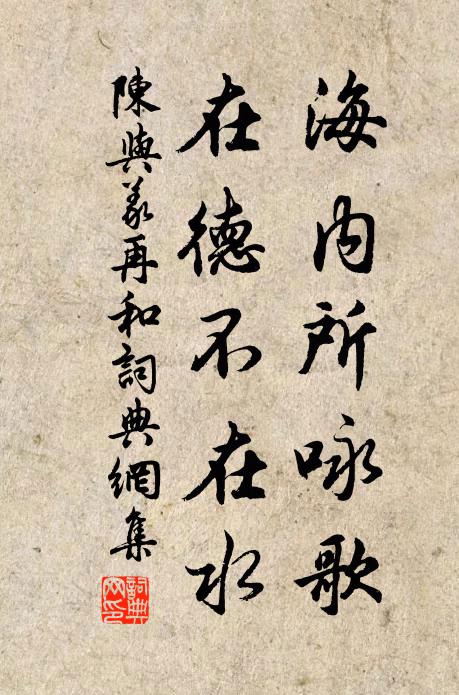 海内所咏歌
在德不在水
陳與義再和詞典網集
詞典網印